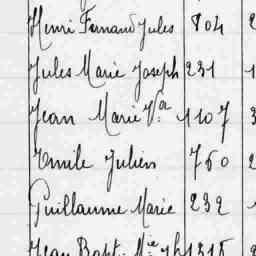 Henri Fernand Jules 804
Jules Marie Joseph 231
Jean Marie Vor 1107
Emile Julien 760
Guillaume Marie 232
Jean Bapt. Mie